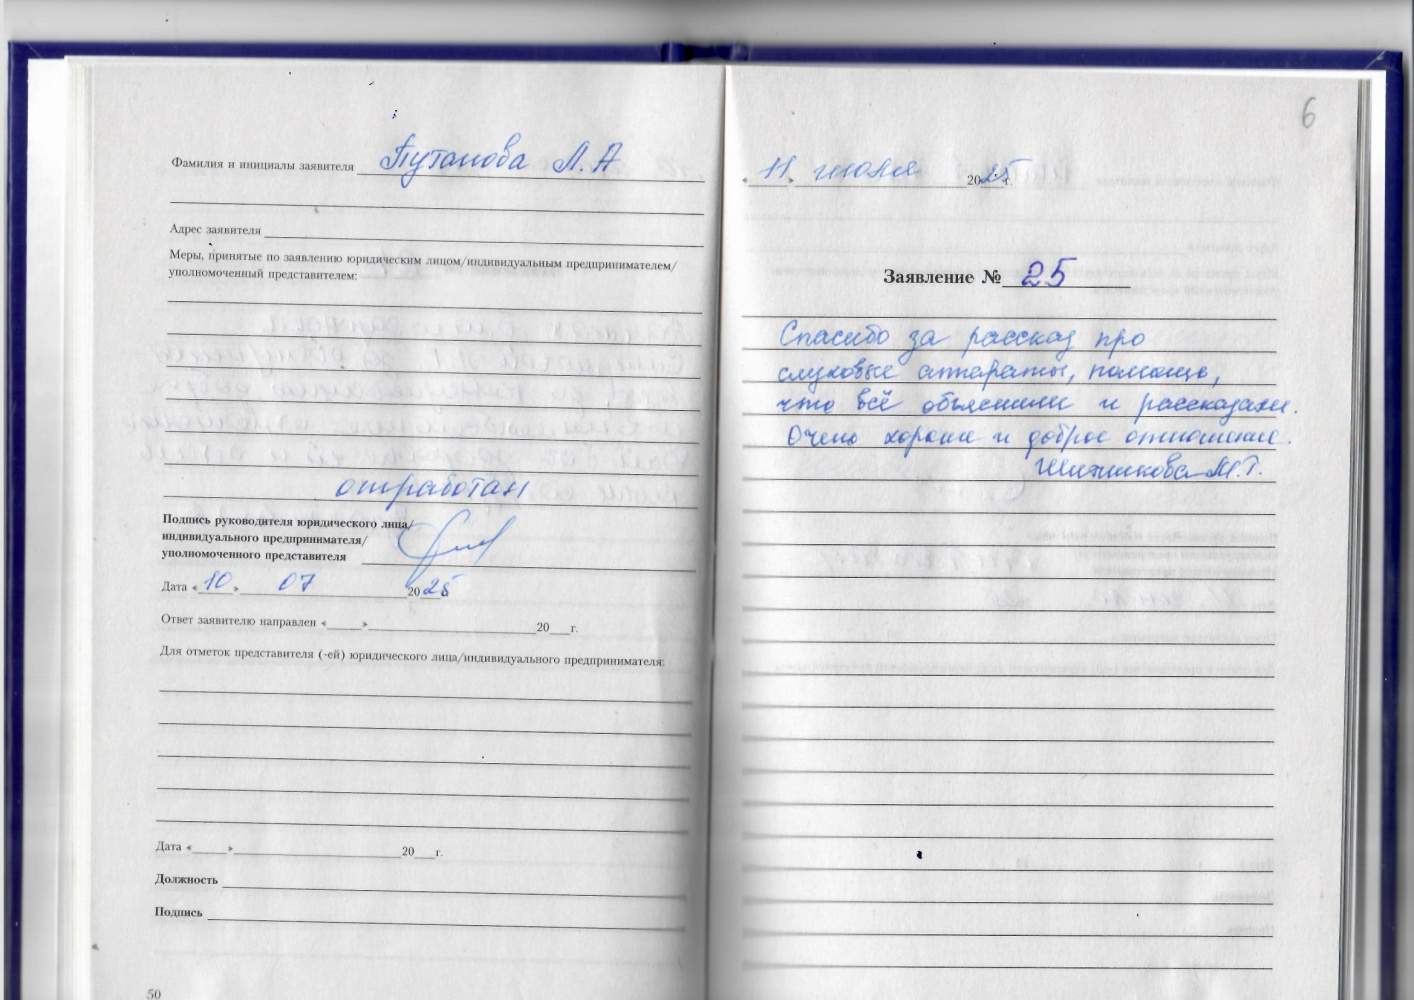 Фамилия и инициалы заявителя Путанова Л. А
Адрес заявителя
Меры, принятые по заявлению юридическим лицом/индивидуальным предпринимателем/
уполномоченный представителем:
отработан
Подпись руководителя юридического лица/
индивидуального предпринимателя/
уполномоченного представителя
Дата «10» 07 2025
Ответ заявителю направлен «____»____ 20___г.
Для отметок представителя (-ей) юридического лица/индивидуального предпринимателя:
Дата «____»____ 20___г.
Должность
Подпись
50
6
«11» июля 2025г.
Заявление № 25
Спасибо за рассказ про
слуховые аппараты, помощь,
что всё объяснили и рассказали.
Очень хорошее и доброе отношение.
М.Т.